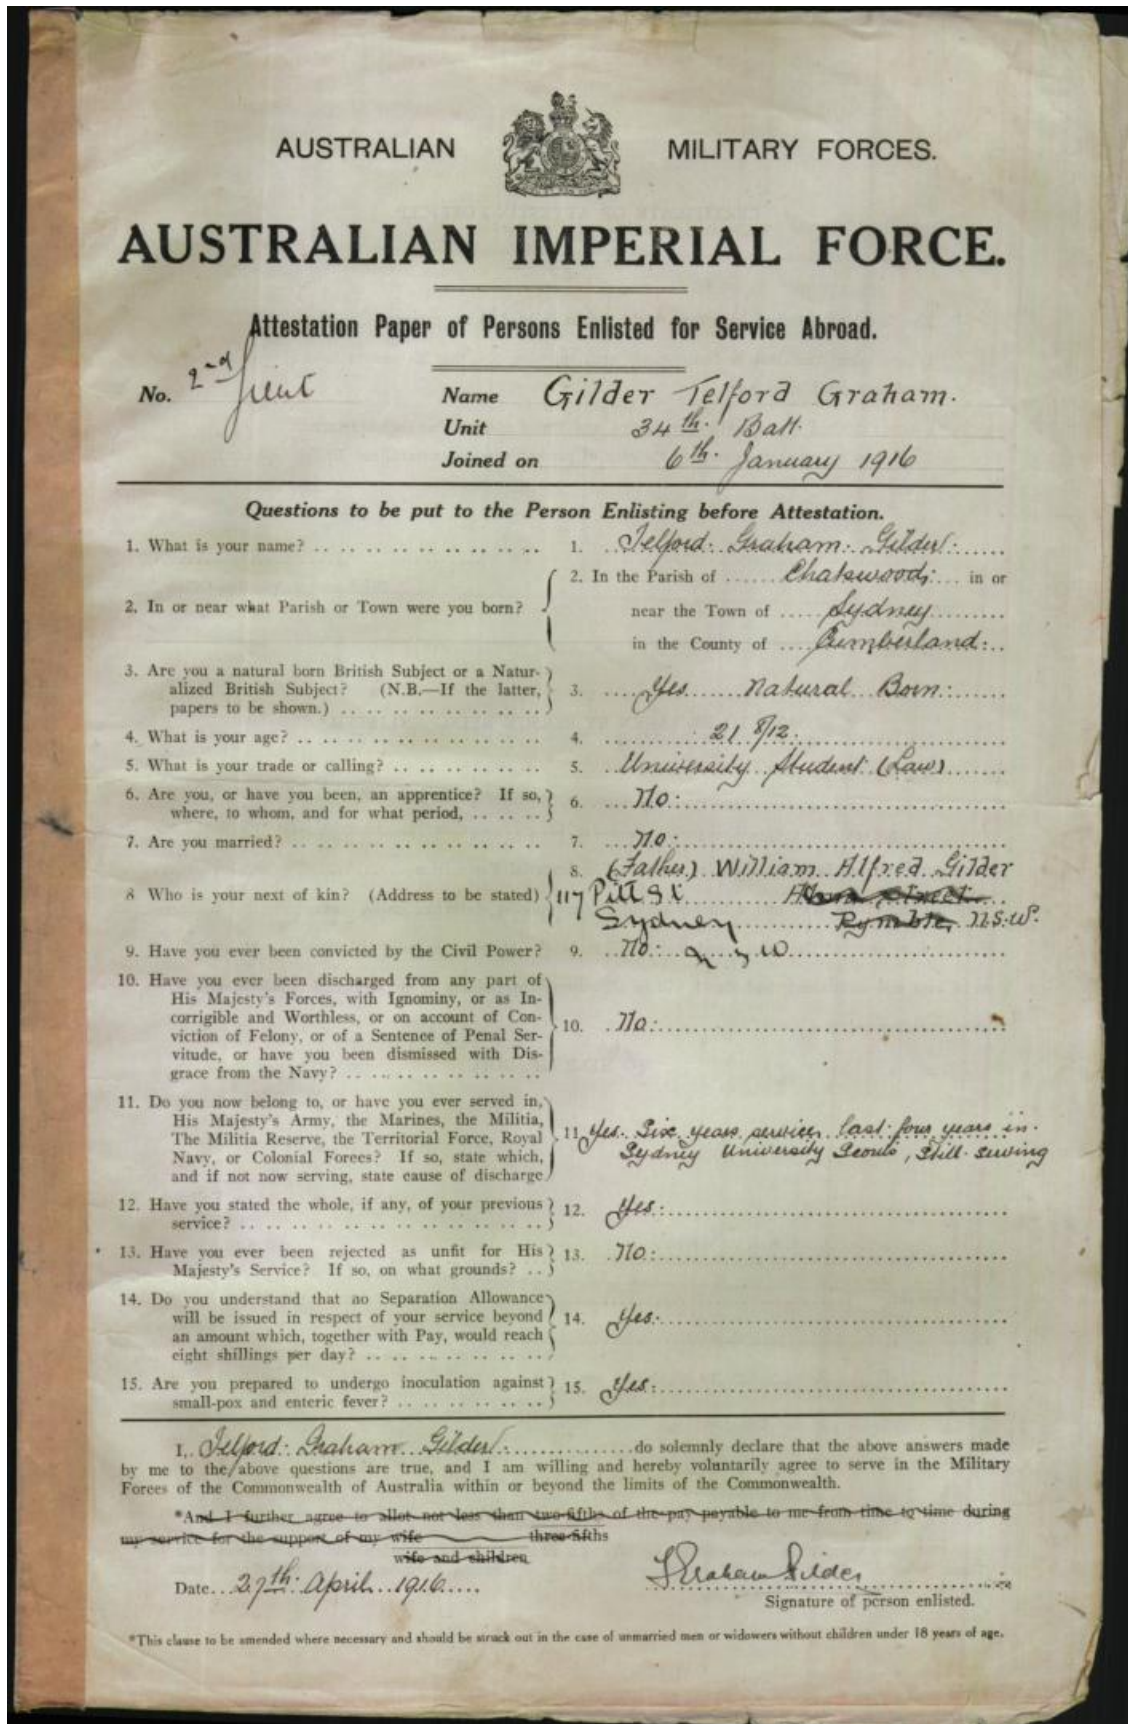 AUSTRALIAN MILITARY FORCES.
AUSTRALIAN IMPERIAL FORCE.
Attestation Paper of Persons Enlisted for Service Abroad.
No. 2nd Lieut
Name Gilder Telford Graham.
Unit 34th. Batt.
Joined on 6th. January 1916
Questions to be put to the Person Enlisting before Attestation.
1. What is your name? 1. Telford. Graham. Gilder.
2. In or near what Parish or Town were you born? 2. In the Parish of Chatswood: in or
near the Town of Sydney
in the County of Cumberland:
3. Are you a natural born British Subject or a Natur-
alized British Subject? (N.B.—If the latter, 3. Yes Natural Born:
papers to be shown.)
4. What is your age? 4. 21 8/12.
5. What is your trade or calling? 5. University Student (Law)
6. Are you, or have you been, an apprentice? If so, 6. No:
where, to whom, and for what period,
7. Are you married? 7. No:
8. (Father) William Alfred Gilder
8 Who is your next of kin? (Address to be stated) 117 Pitt St Street
Sydney Pymble, N.S.W.
9. Have you ever been convicted by the Civil Power? 9. No: N S W
10. Have you ever been discharged from any part of
His Majesty's Forces, with Ignominy, or as In-
corrigible and Worthless, or on account of Con-
viction of Felony, or of a Sentence of Penal Ser- 10. No:
vitude, or have you been dismissed with Dis-
grace from the Navy?
11. Do you now belong to, or have you ever served in,
His Majesty's Army, the Marines, the Militia, 11 Yes. Six years service, last four years in
The Militia Reserve, the Territorial Force, Royal Sydney University Scouts, Still serving
Navy, or Colonial Forces? If so, state which,
and if not now serving, state cause of discharge
12. Have you stated the whole, if any, of your previous 12. Yes:
service?
13. Have you ever been rejected as unfit for His 13. No:
Majesty's Service? If so, on what grounds?
14. Do you understand that no Separation Allowance
will be issued in respect of your service beyond 14. Yes:
an amount which, together with Pay, would reach
eight shillings per day?
15. Are you prepared to undergo inoculation against 15. Yes:
small-pox and enteric fever?
I, Telford. Graham. Gilder. do solemnly declare that the above answers made
by me to the above questions are true, and I am willing and hereby voluntarily agree to serve in the Military
Forces of the Commonwealth of Australia within or beyond the limits of the Commonwealth.
*And I further agree to allot not less than two-fifths of the pay payable to me from time to time during
my service for the support of my wife three-fifths
wife and children
Date 27th. April 1916
T Graham Gilder
Signature of person enlisted.
*This clause to be amended where necessary and should be struck out in the case of unmarried men or widowers without children under 18 years of age.